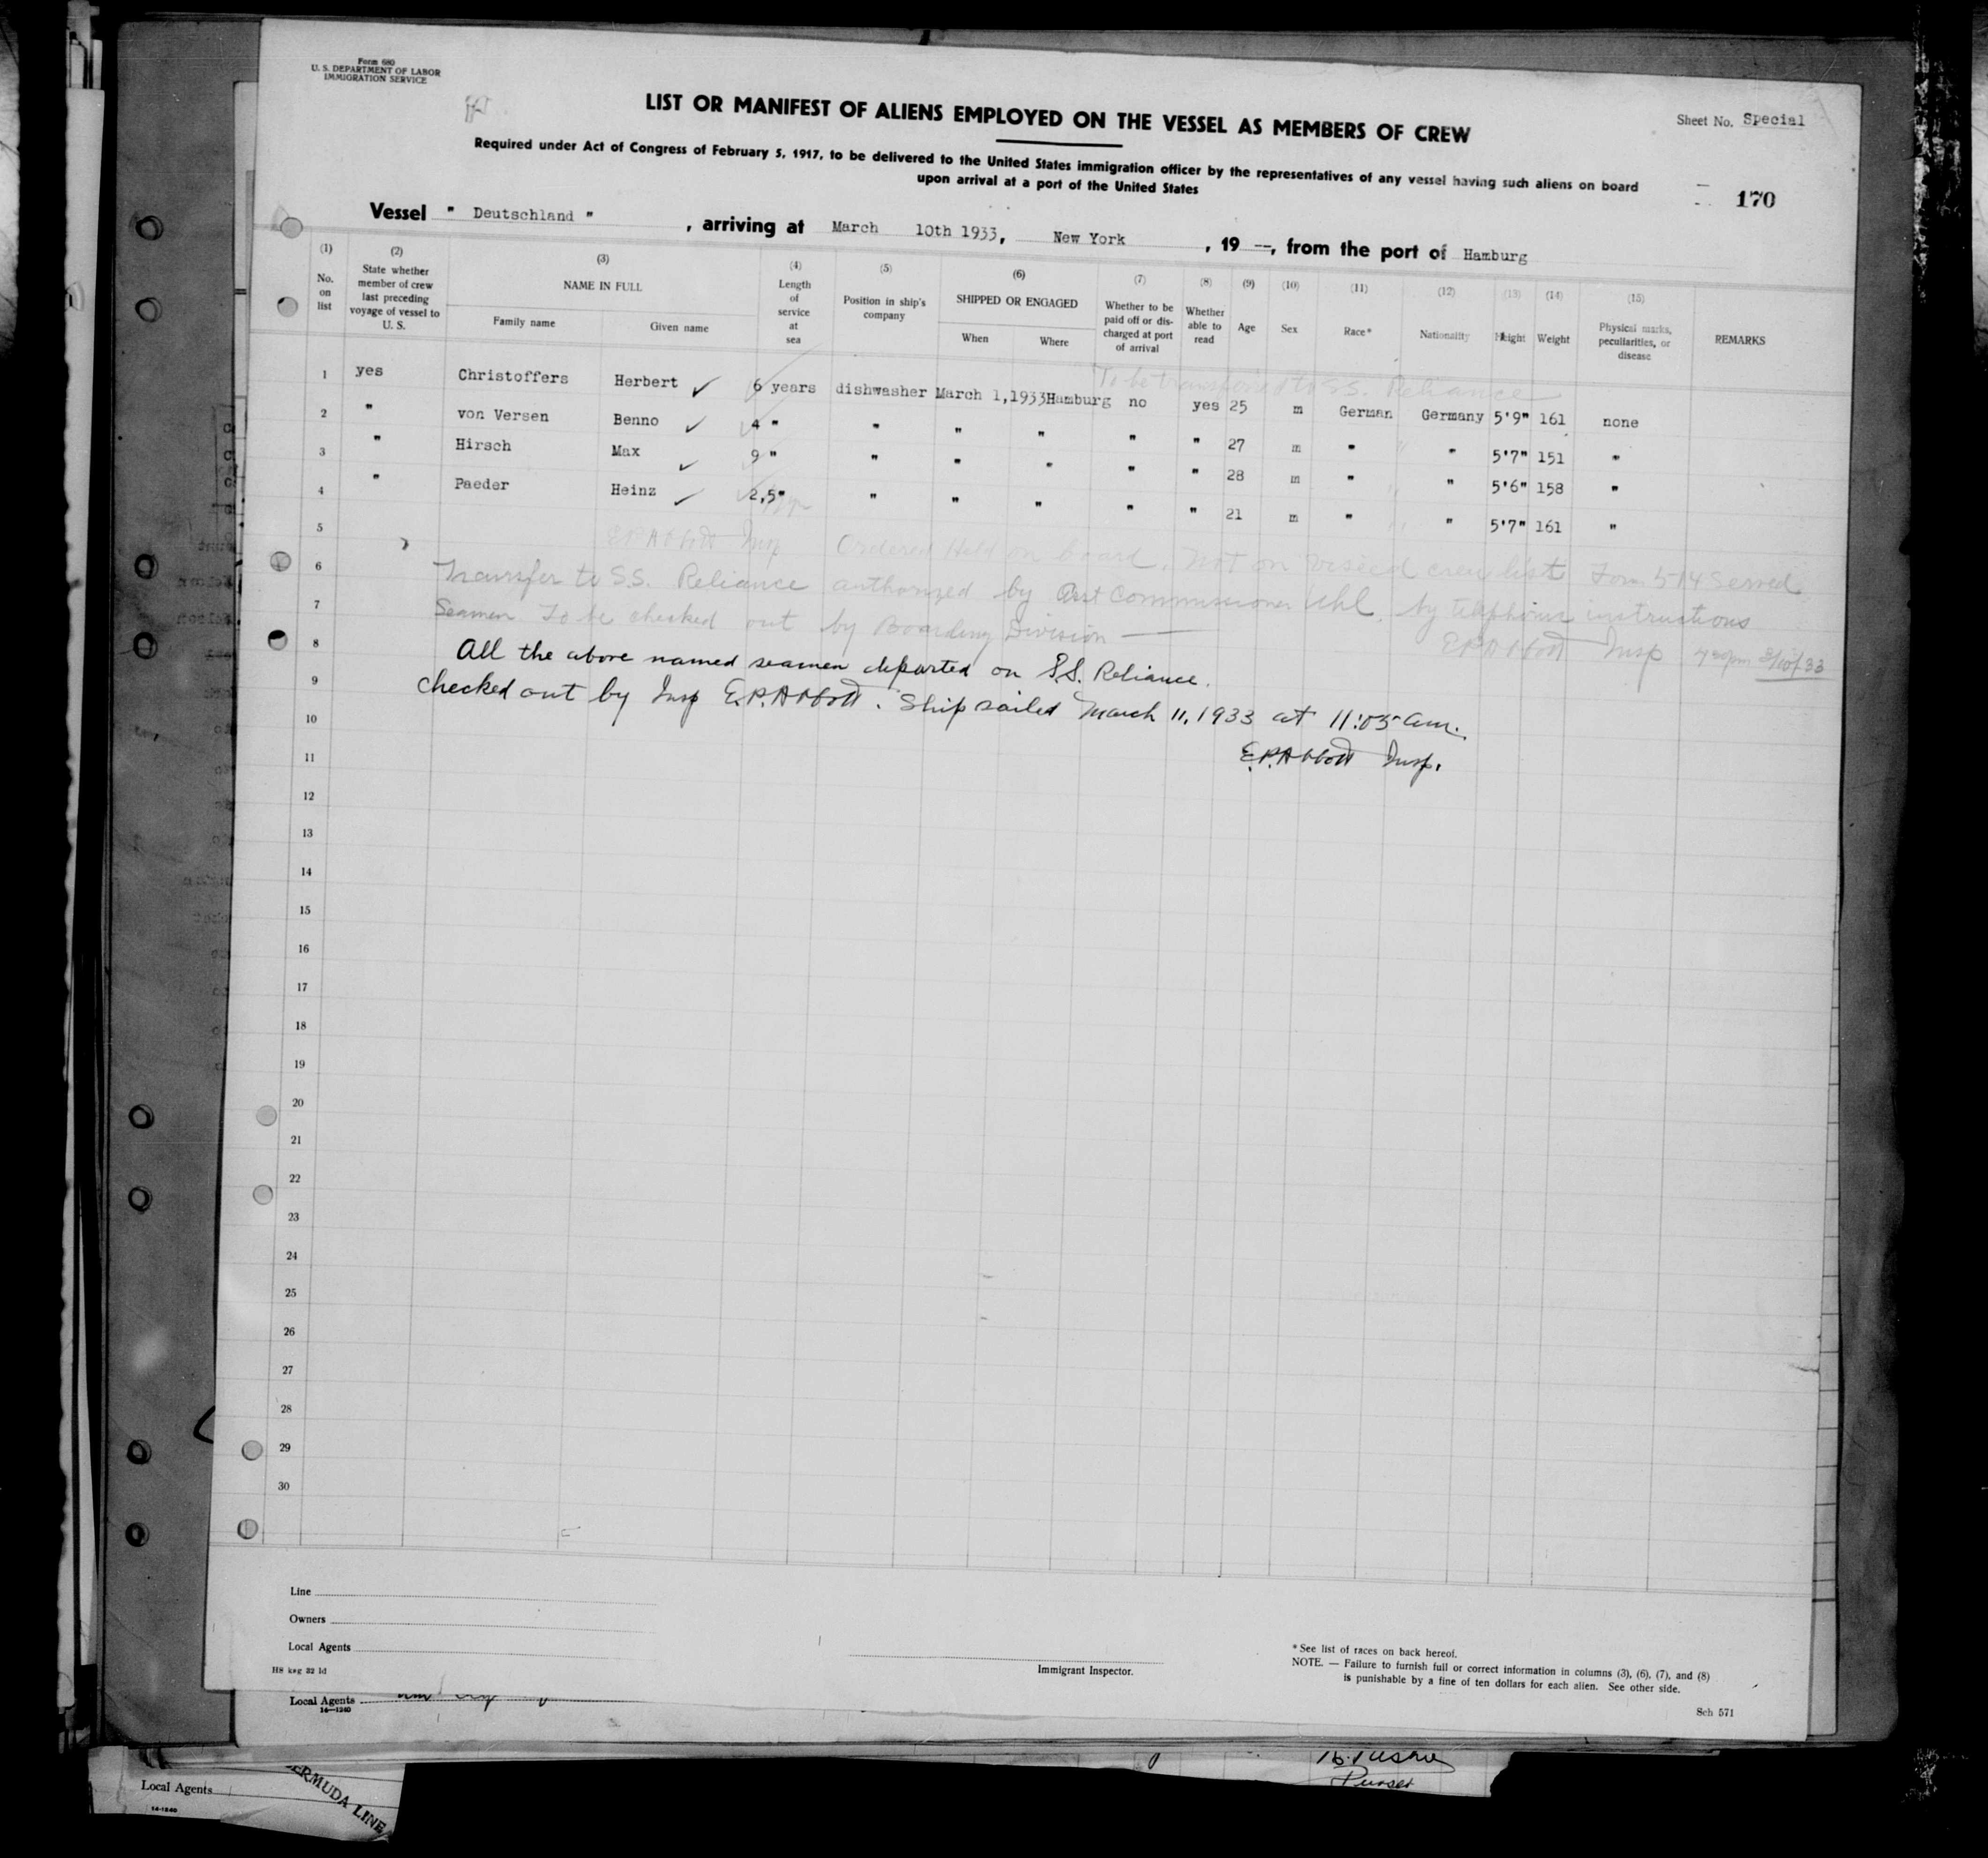 Form 680
U. S. DEPARTMENT OF LABOR
IMMIGRATION SERVICE
LIST OR MANIFEST OF ALIENS EMPLOYED ON THE VESSEL AS MEMBERS OF CREW
Sheet No. Special
Required under Act of Congress of February 5, 1917, to be delivered to the United States immigration officer by the representatives of any vessel having such aliens on board
upon arrival at a port of the United States
170
Vessel " Deutschland " , arriving at March 10th 1933, New York , 19 --, from the port of Hamburg
(1) No. on list
(2) State whether member of crew last preceding voyage of vessel to U. S.
(3) NAME IN FULL
Family name Given name
(4) Length of service at sea
(5) Position in ship's company
(6) SHIPPED OR ENGAGED
When Where
(7) Whether to be paid off or discharged at port of arrival
(8) Whether able to read
(9) Age
(10) Sex
(11) Race*
(12) Nationality
(13) Height
(14) Weight
(15) Physical marks, peculiarities, or disease
REMARKS
To be transferred to S.S. Reliance
1 yes Christoffers Herbert ✓ 6 years dishwasher March 1,1933 Hamburg no yes 25 m German Germany 5'9" 161 none
2 " von Versen Benno ✓ 4 " " " " " " 27 m " " 5'7" 151 "
3 " Hirsch Max ✓ 9 " " " " " " 28 m " " 5'6" 158 "
4 " Paeder Heinz ✓ 2,5" " " " " " 21 m " " 5'7" 161 "
5 E.P.Abbott Insp Ordered Held on board. Not on viseed crew list Form 514 served
6 Transfer to S.S. Reliance authorized by Asst Commissioner Uhl. by telephone instructions
7 Seamen To be checked out by Boarding Division —
E.P.Abbott Insp 3/10/33
8 All the above named seamen departed on S.S. Reliance.
9 checked out by Insp E.P.Abbott. Ship sailed March 11, 1933 at 11:05 am.
10
E.P.Abbott Insp.
11
12
13
14
15
16
17
18
19
20
21
22
23
24
25
26
27
28
29
30
Line
Owners
Local Agents
H8 kag 32 ld
Immigrant Inspector.
* See list of races on back hereof.
NOTE. — Failure to furnish full or correct information in columns (3), (6), (7), and (8)
is punishable by a fine of ten dollars for each alien. See other side.
Sch 571
Local Agents
14—1240
Purser
Local Agents
14-1240
ERMUDA LINE